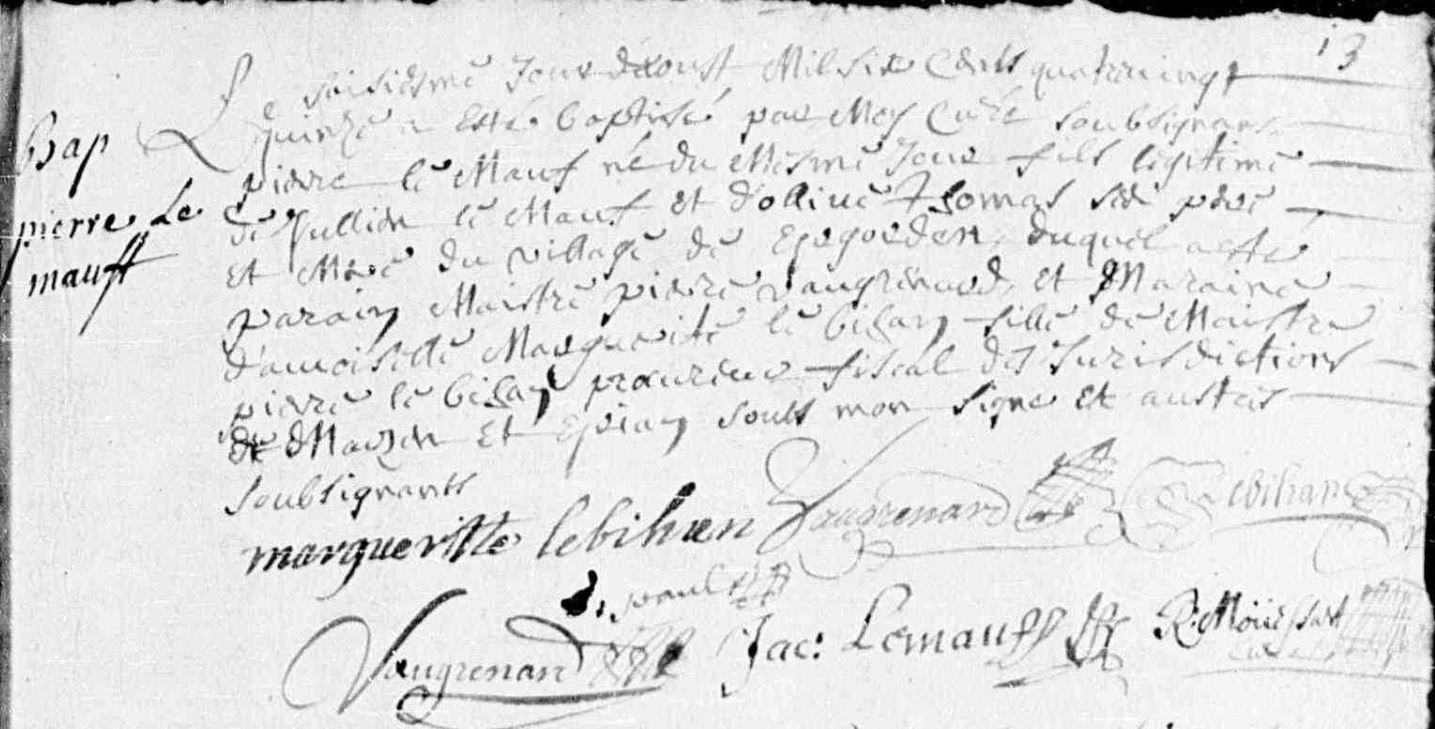 13
Le saisiesme Jour daoust Mil six Cents quatrevingt
quinze a esté baptisé par Moy Curé soubsignant
Bap
pierre Le
mauff
pierre le Mauf né du Mesme Jour fils legitime
de Jullien le Mauf et d'ollive Thomas ses pere
et Mere du village de duquel a esté
parain Maistre pierre Vaugrenard et Maraine
damoiselle Marguerite le bihan fille de Maistre
pierre le bihan procureur fiscal des Jurisdictions
de et soubs mon signe et austres
soubsignants
margueritte lebihan Vaugrenard Lebihan
Vaugrenard Jac: Lemauff R: